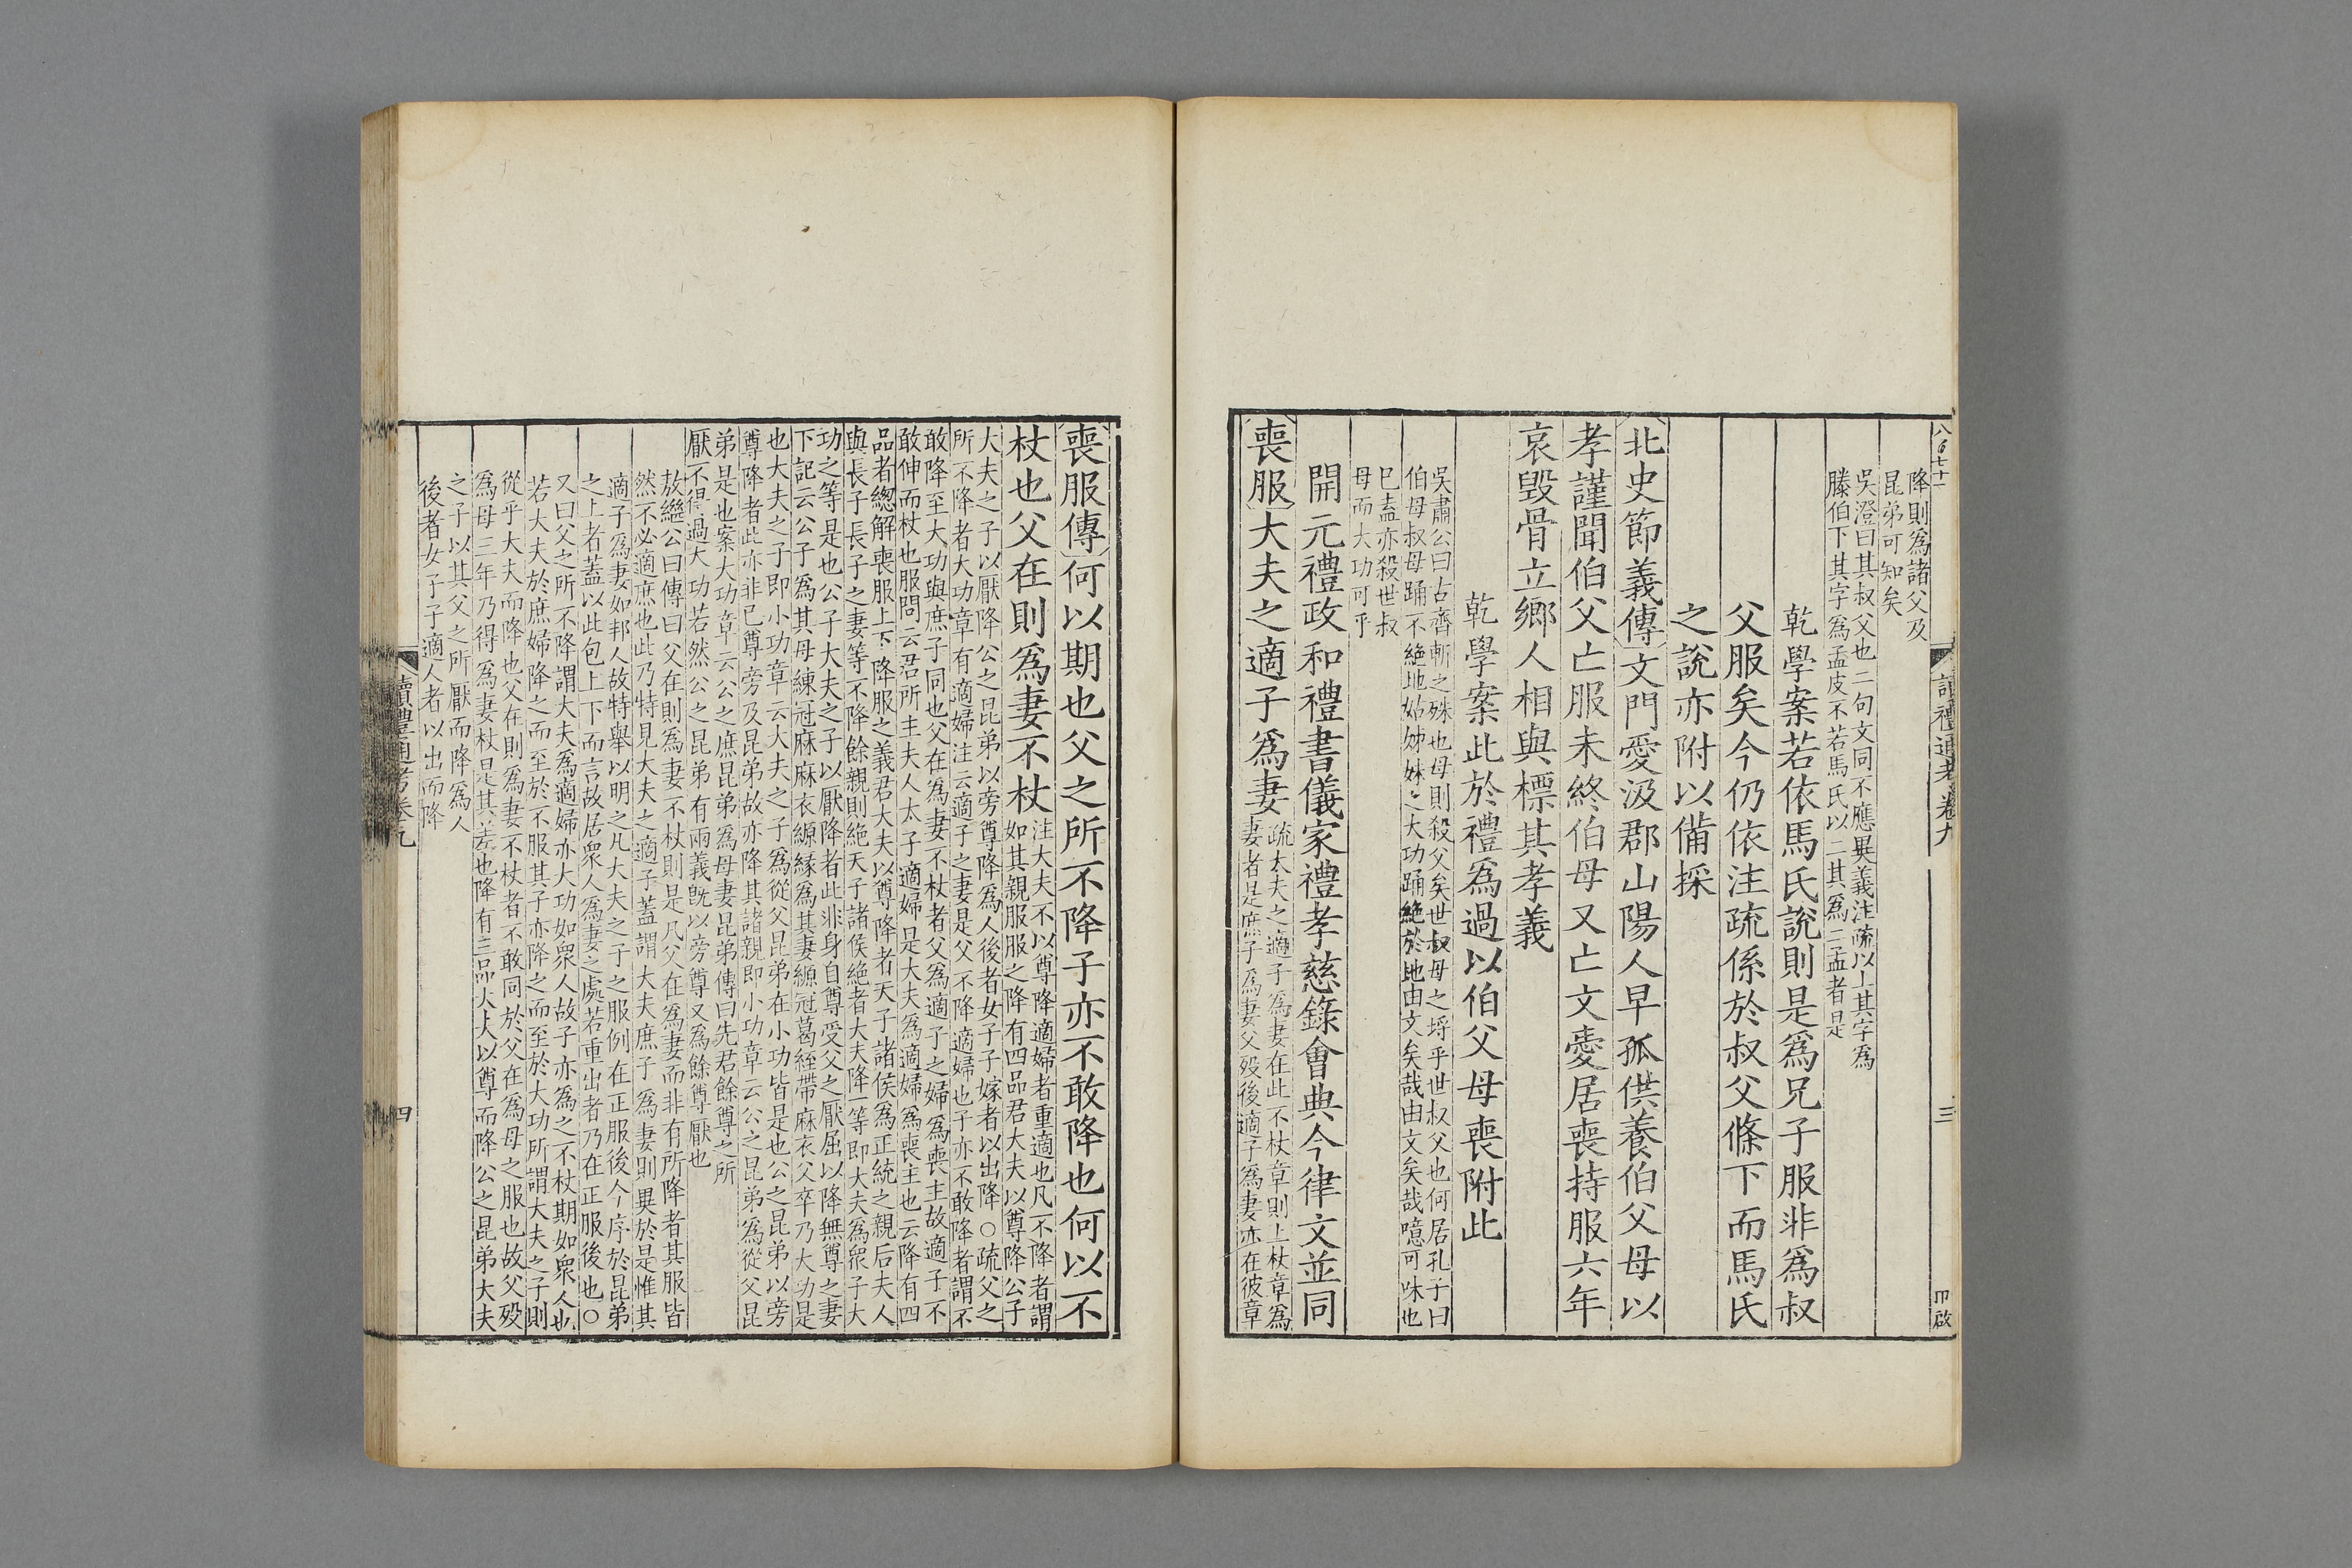 八百七十一
讀禮通考卷九
三
卬啟
降則爲諸父及
昆弟可知矣
吳澄曰其叔父也二句文同不應異義注疏以上其字爲
滕伯下其字爲孟皮不若馬氏以二其爲二孟者是
乾學案若依馬氏說則是爲兄子服非爲叔
父服矣今仍依注疏係於叔父條下而馬氏
之說亦附以備採
北史節義傳文門愛汲郡山陽人早孤供養伯父母以
孝謹聞伯父亡服未終伯母又亡文愛居喪持服六年
哀毀骨立鄉人相與標其孝義
乾學案此於禮爲過以伯父母喪附此
吳肅公曰古齊斬之殊也母則殺父矣世叔母之埒乎世叔父也何居孔子曰
伯母叔母踊不絶地姑姊妹之大功踊絶於地由文矣哉由文矣哉噫可味也
巳葢亦殺世叔
母而大功可乎
開元禮政和禮書儀家禮孝慈錄會典今律文並同
喪服大夫之適子爲妻
疏大夫之適子爲妻在此不杖章則上杖章爲
妻者是庶子爲妻父歿後適子爲妻亦在彼章
喪服傳何以期也父之所不降子亦不敢降也何以不
杖也父在則爲妻不杖
注大夫不以尊降適婦者重適也凡不降者謂
如其親服服之降有四品君大夫以尊降公子
大夫之子以厭降公之昆弟以旁尊降爲人後者女子子嫁者以出降○疏父之
所不降者大功章有適婦注云適子之妻是父不降適婦也子亦不敢降者謂不
敢降至大功與庶子同也父在爲妻不杖者父爲適子之婦爲喪主故適子不
敢伸而杖也服問云君所主夫人太子適婦是大夫爲適婦爲喪主也云降有四
品者總解喪服上下降服之義君大夫以尊降者天子諸侯爲正統之親后夫人
與長子長子之妻等不降餘親則絶天子諸侯絶者大夫降一等即大夫爲衆子大
功之等是也公子大夫之子以厭降者此非身自尊受父之厭屈以降無尊之妻
下記云公子爲其母練冠麻麻衣縓緣爲其妻縓冠葛絰帶麻衣父卒乃大功是
也大夫之子即小功章云大夫之子爲從父昆弟在小功皆是也公之昆弟以旁
尊降者此亦非已尊旁及昆弟故亦降其諸親即小功章云公之昆弟爲從父昆
弟是也案大功章云公之庶昆弟爲母妻昆弟傳曰先君餘尊之所
厭不得過大功若然公之昆弟有兩義既以旁尊又爲餘尊厭也
敖繼公曰傳曰父在則爲妻不杖則是凡父在爲妻而非有所降者其服皆
然不必適庶也此乃特見大夫之適子蓋謂大夫庶子爲妻則異於是惟其
適子爲妻如邦人故特舉以明之凡大夫之子之服例在正服後今序於昆弟
之上者蓋以此包上下而言故居衆人爲妻之處若重出者乃在正服後也○
又曰父之所不降謂大夫爲適婦亦大功如衆人故子亦爲之不杖期如衆人也
若大夫於庶婦降之而至於不服其子亦降之而至於大功所謂大夫之子則
從乎大夫而降也父在則爲妻不杖者不敢同於父在爲母之服也故父歿
爲母三年乃得爲妻杖是其差也降有三品大夫以尊而降公之昆弟大夫
之子以其父之所厭而降爲人
後者女子子適人者以出而降
讀禮通考卷九
四